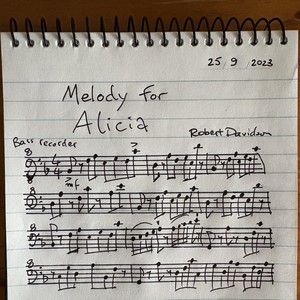 25/9/2023
Melody for
Alicia
Robert Davidson
Bass recorder
mf